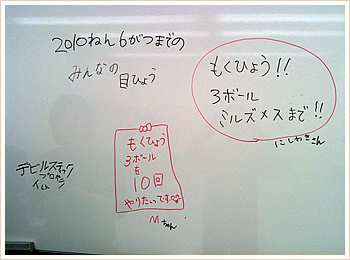 2010ねん6がつまでの
みんなの
目ひょう
もくひょう!!
3ボール
ミルズメスまで!!
にしわきさん
もくひょう
3ボール
を
10回
やりたいです
Mちゃん
デビルスティック